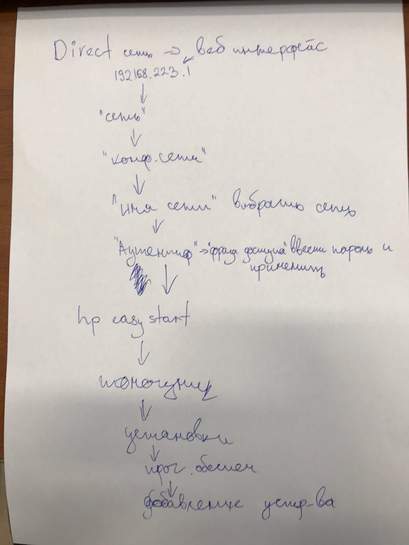 Direct сеть → веб интерфейс
192.168.223.1
"сеть"
"конф. сети"
"имя сети" выбрать сеть
"Аутентиф" → "фраза доступа" ввести пароль и
применить
hp easy start
установки
прог. обеспеч
добавление устр-ва